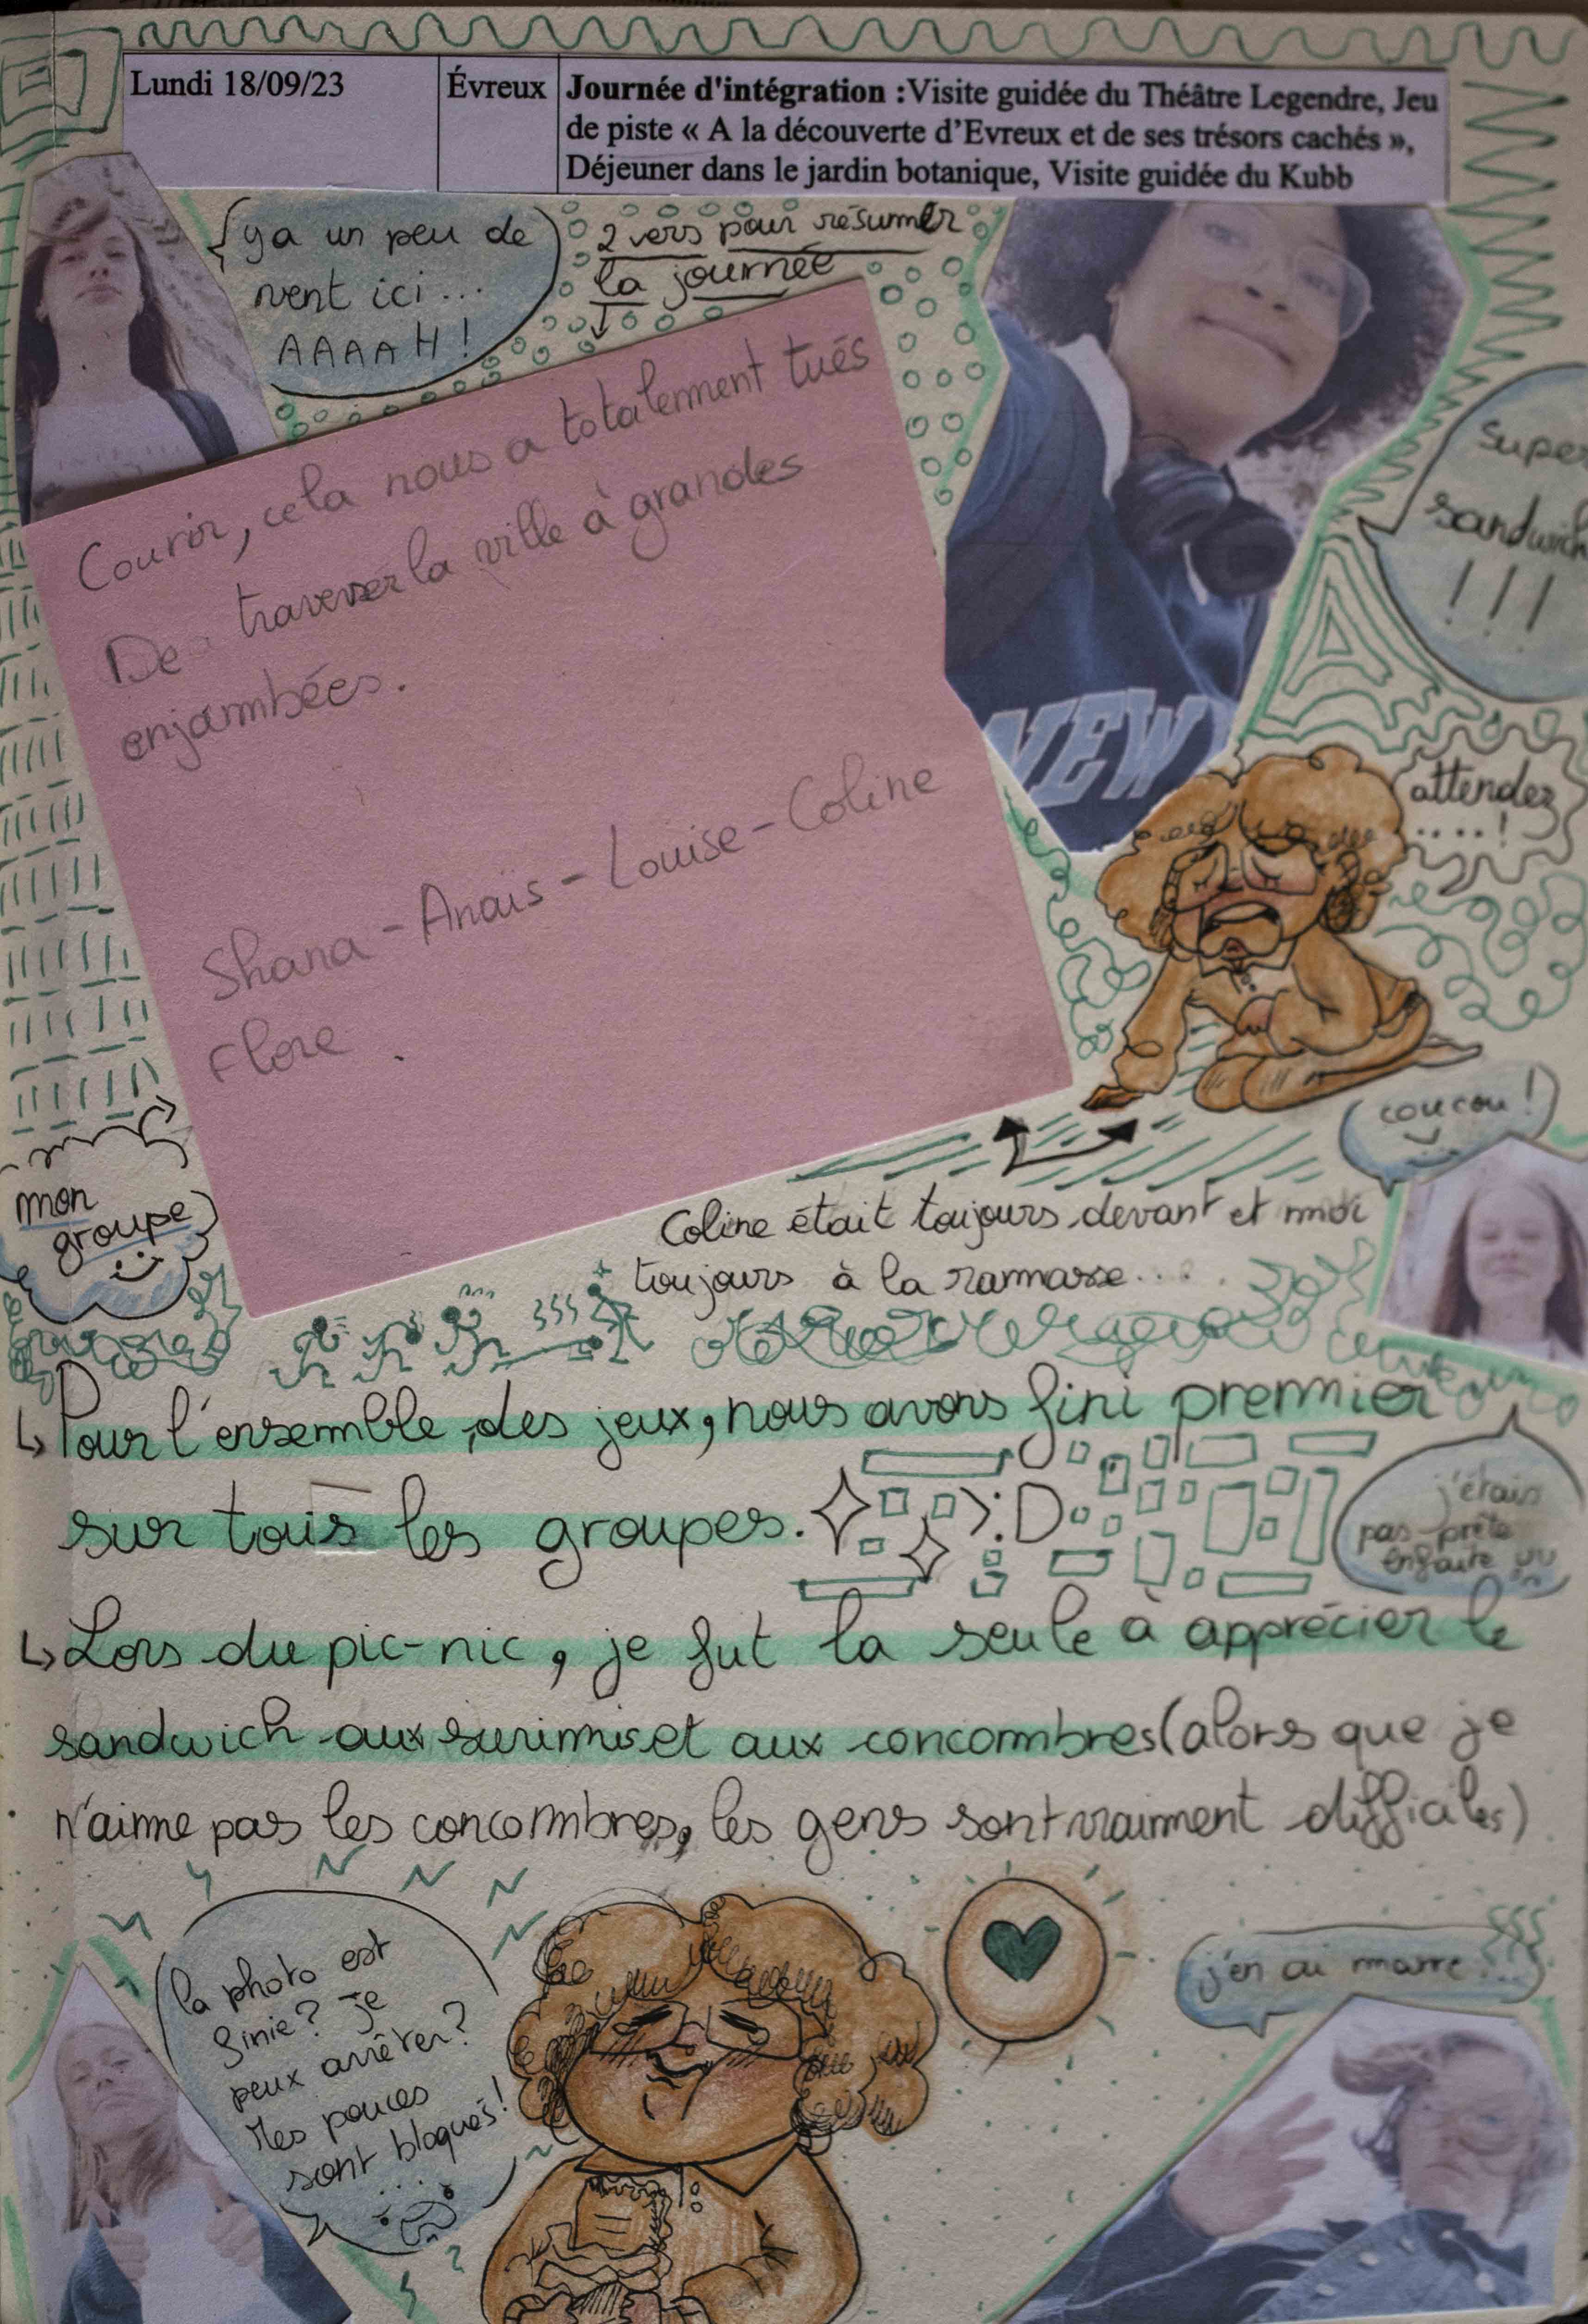 Lundi 18/09/23
Évreux
Journée d'intégration :Visite guidée du Théâtre Legendre, Jeu
de piste « A la découverte d'Evreux et de ses trésors cachés »,
Déjeuner dans le jardin botanique, Visite guidée du Kubb
y a un peu de
vent ici...
AAAAH!
2 vers pour résumer
la journée
Courir, cela nous a totalement tués
De traverser la ville à grandes
enjambées.
Shana - Anaïs - Louise - Coline
Flore.
Super
sandwich
!!!
NEW
attendez
....!
coucou!
mon
groupe
Coline était toujours devant et moi
toujours à la ramasse....
↳ Pour l'ensemble des jeux, nous avons fini premier
sur tous les groupes. >:D
j'étais
pas prête
enfaite
↳ Lors du pic-nic, je fut la seule à apprécier le
sandwich aux surimis et aux concombres (alors que je
n'aime pas les concombres, les gens sont vraiment difficiles)
la photo est
finie? je
peux arrêter?
Mes pouces
sont bloqués!
...
j'en ai marre...